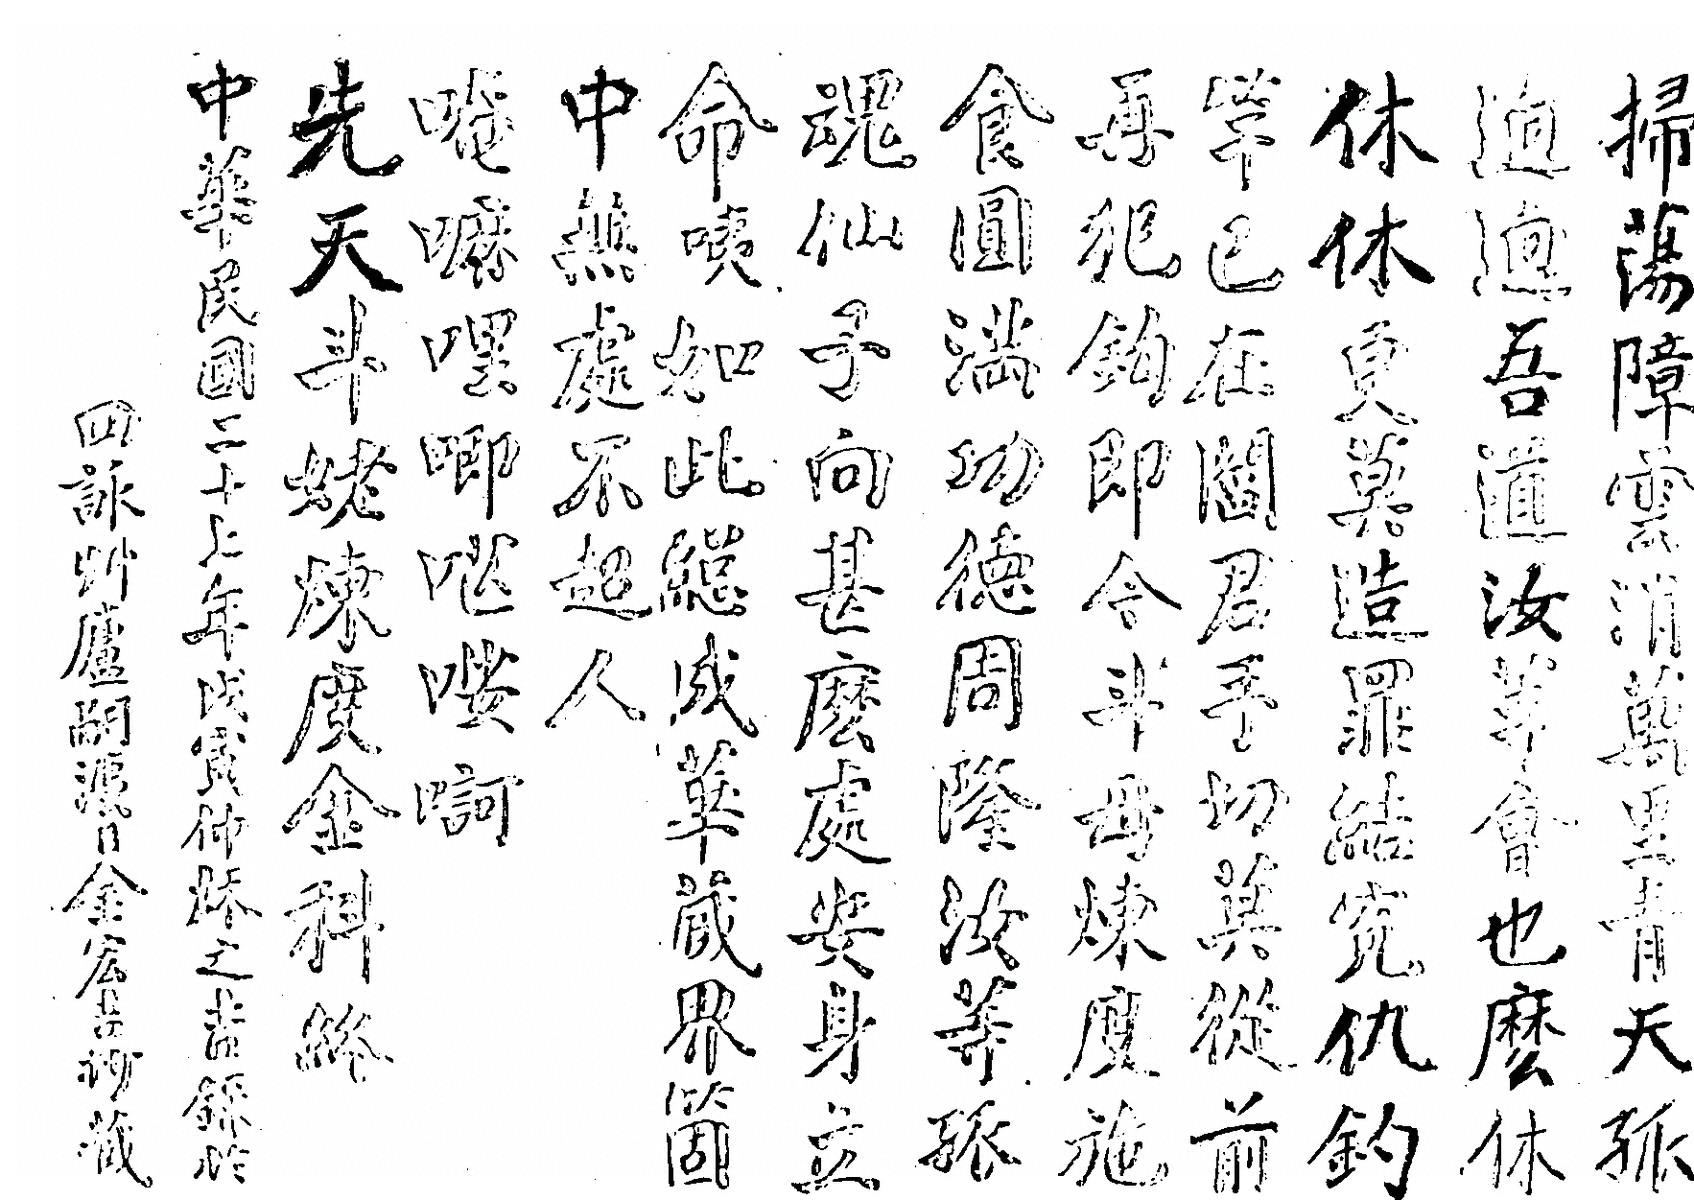 掃蕩障雲消萬里青天孤
逈逈吾道汝等會也麽休
休休更莫造罪結寃仇鈞
竿已在閻君手切莫從前
再犯鈎即今斗母煉度施
食圓滿功德周隆汝等孤
魂仙子向甚麽處安身立
命咦如此總成華藏界箇
中無處不超人
唵嘛哩唧吣㗰訶
先天斗姥煉度金科終
中華民國二十上年戊寅仲烋之吉錄於
四詠艸廬嗣源曾金宏吉抄藏